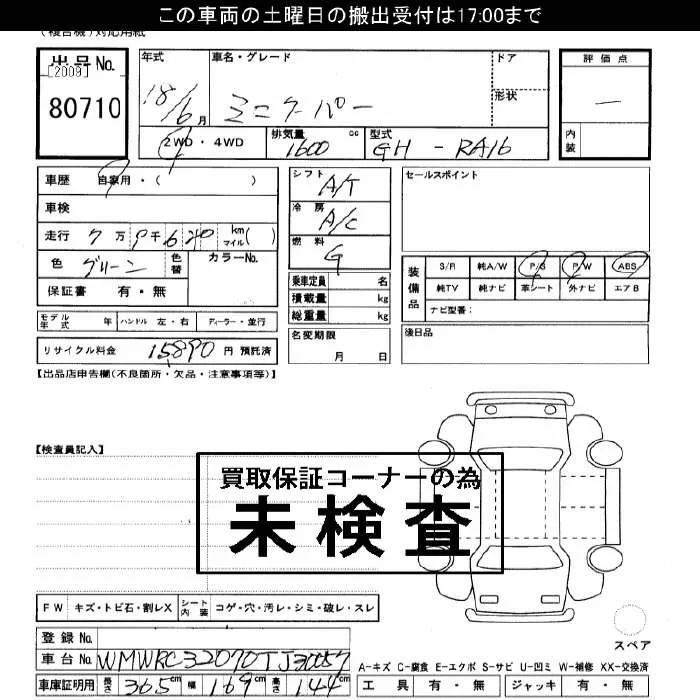 この車両の土曜日の搬出受付は17:00まで
(複合機)対応用紙
出品No.
[2009]
80710
年式
18/6月
車名・グレード
ミニクーパー
ドア
形状
評価点
―
内装
2WD・4WD
排気量
1600
cc
型式
GH - RA16
車歴 自家用・( )
車検
走行 7万 9千6
km
マイル( )
色 グリーン
色替
カラーNo.
保証書 有・無
シフト
A/T
冷房
A/C
燃料
G
セールスポイント
装備品
S/R 純A/W P/S P/W ABS
純TV 純ナビ 革シート 外ナビ エアB
ナビ型番:
乗車定員 名
積載量 kg
総重量 kg
モデル年式 年 ハンドル 左・右 ディーラー・並行
名変期限
月 日
後日品
リサイクル料金 15890 円 預託済
【出品店申告欄(不良箇所・欠品・注意事項等)】
【検査員記入】
買取保証コーナーの為
未検査
FW キズ・トビ石・割レX
シート内装
コゲ・穴・汚レ・シミ・破レ・スレ
スペア
登録No.
車台No. WMWRC32070TJ30057
A-キズ C-腐食 E-エクボ S-サビ U-凹ミ W-補修 XX-交換済
車庫証明用 長さ 365cm 幅 169cm 高さ 144cm
工具 有・無 ジャッキ 有・無